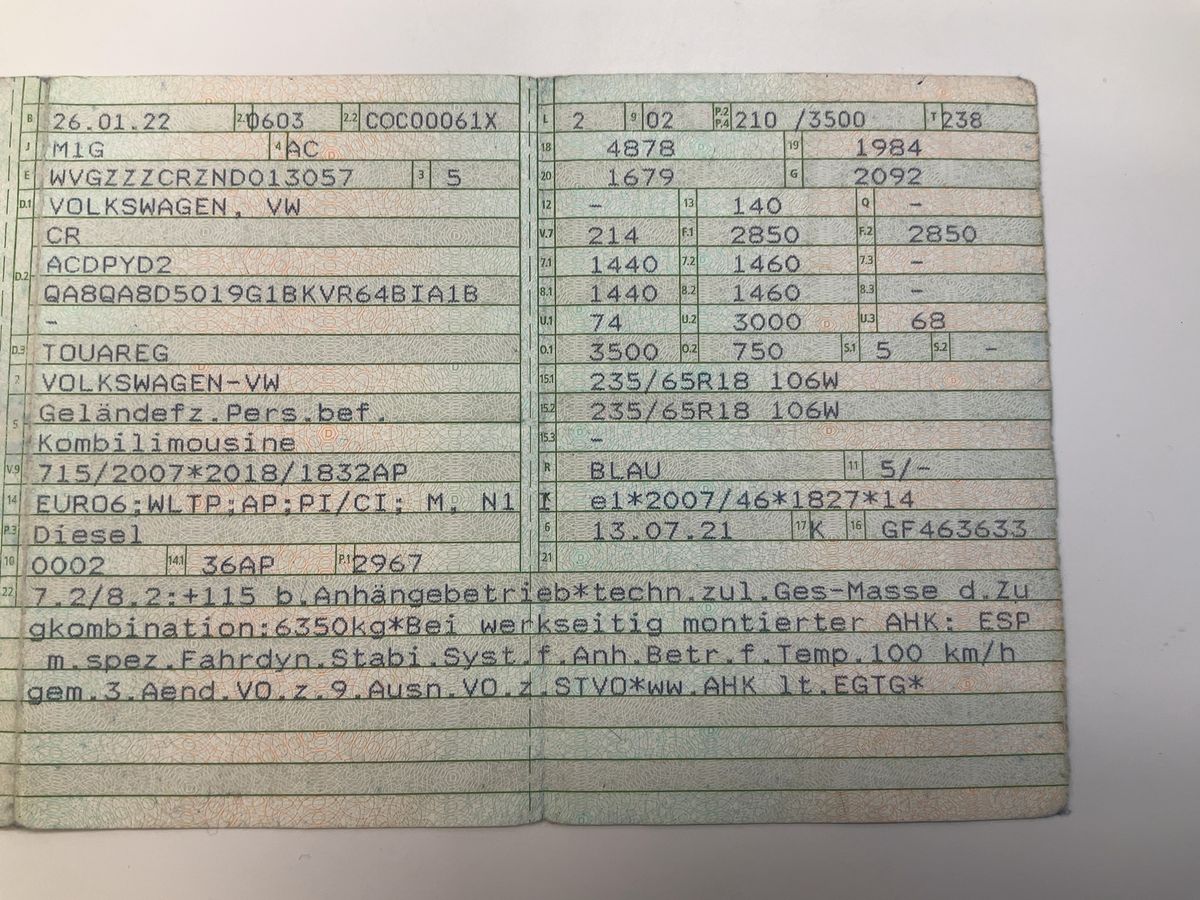 B 26.01.22 2.1 0603 2.2 COC00061X
J M1G 4 AC
E WVGZZZCRZND013057 3 5
D.1 VOLKSWAGEN, VW
CR
D.2 ACDPYD2
QA8QA8D5019G1BKVR64BIA1B
-
D.3 TOUAREG
2 VOLKSWAGEN-VW
5 Geländefz.Pers.bef.
Kombilimousine
V.9 715/2007*2018/1832AP
14 EURO6;WLTP;AP;PI/CI; M, N1 I
P.3 Diesel
10 0002 14.1 36AP P.1 2967
L 2 9 02 P.2 P.4 210 /3500 T 238
18 4878 19 1984
20 1679 G 2092
12 - 13 140 Q -
V.7 214 F.1 2850 F.2 2850
7.1 1440 7.2 1460 7.3 -
8.1 1440 8.2 1460 8.3 -
U.1 74 U.2 3000 U.3 68
O.1 3500 O.2 750 S.1 5 S.2 -
15.1 235/65R18 106W
15.2 235/65R18 106W
15.3 -
R BLAU 11 5/-
K e1*2007/46*1827*14
6 13.07.21 17 K 16 GF463633
21
22 7.2/8.2:+115 b.Anhängebetrieb*techn.zul.Ges-Masse d.Zu
gkombination:6350kg*Bei werkseitig montierter AHK: ESP
m.spez.Fahrdyn.Stabi.Syst.f.Anh.Betr.f.Temp.100 km/h
gem.3.Aend.VO.z.9.Ausn.VO.z.STVO*ww.AHK lt.EGTG*